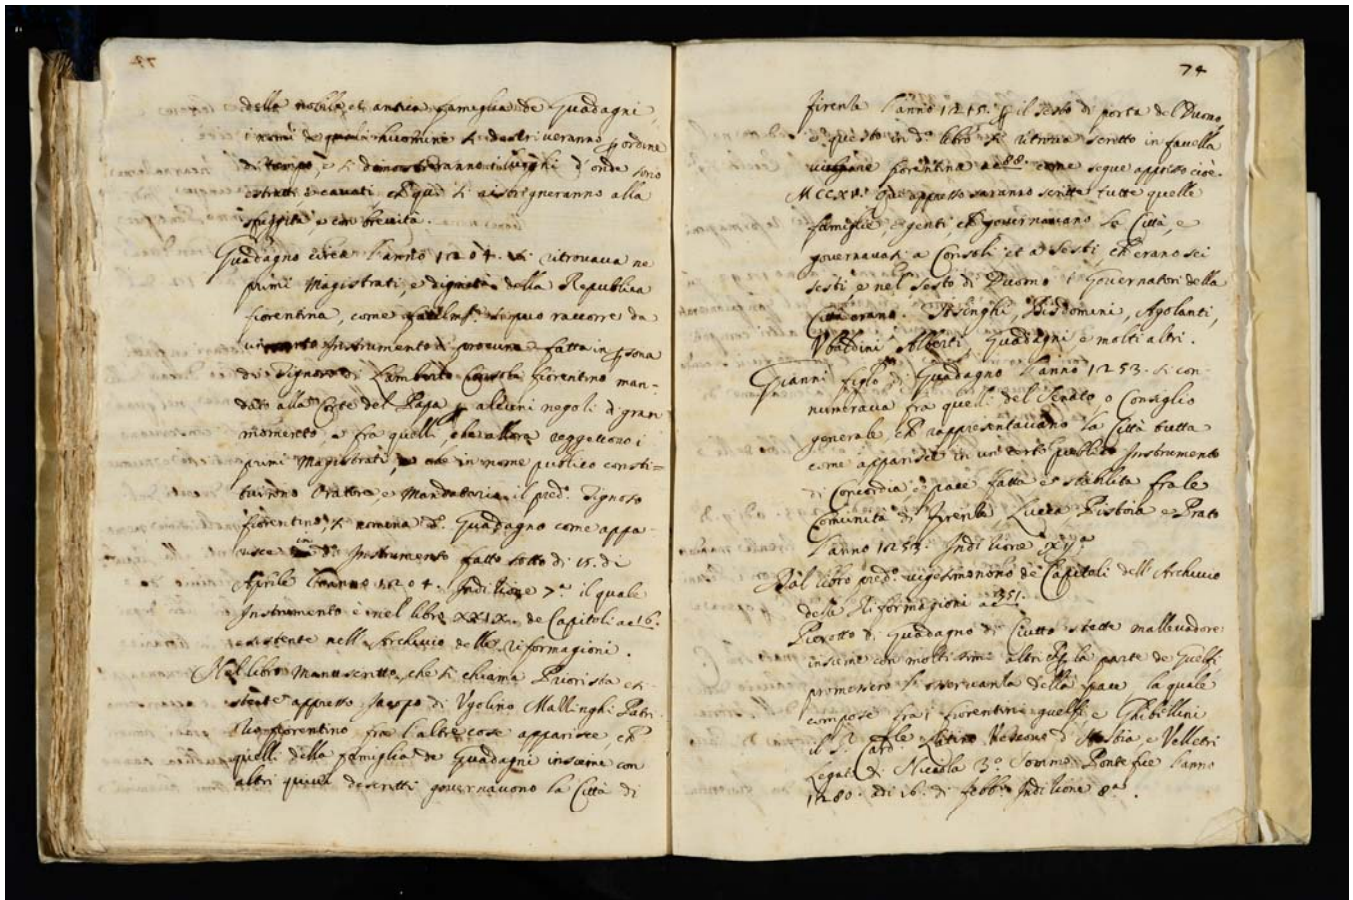 della nobile et antica famiglia de Guadagni,
i nomi de quali huomini si descriveranno p ordine
di tempo, e si dimostreranno i luoghi d'onde sono
estratti, e cavati, e qui si ristrigneranno alla
sfuggita e con brevità.
Guadagno circa l'anno 1204. si ritrovava ne
primi Magistrati, e dignità della Republica
fiorentina, come si può raccorre da
un Instrumento di procura fatta in psona
di Signore di Lamberto fiorentino man-
dato alla Corte del Papa p alcuni negoli di gran
momento, e fra quelli, che allora reggettono i
primi Magistrati, e che in nome publico consti=
tuirono Oratore e Mandatario il pred.o Signore
fiorentino, si nomina d.o Guadagno come appa-
risce in d.o Instrumento fatto sotto dì 15. di
Aprile l'anno 1204. Indilione 7.a il quale
Instrumento è nel libro XXIX. de Capitoli a c 16.
esistente nell'Archivio delle Riformagioni.
Nel libro manuscritto, che si chiama Priorista esi-
stente appresso Jacopo di Ugolino Mallinghi Patri-
tio fiorentino fra l'altre cose apparisce, che
quelli della famiglia de Guadagni insieme con
altri quivi descritti governavono la Città di
74
firenla l'anno 1215. p il Sesto di porta del Duomo,
e questo in d.o libro si ritrova scritto in favella
volgare fiorentina a c 88. come segue appresso cioè.
MCCXV. Qui appresso saranno scritte tutte quelle
famiglie e genti che governavano la Città, e
governavasi a Consoli et a Sesti che erano sei
sesti e nel Sesto di Duomo i Governatori della
Città erano. Tosinghi, Bisdomini, Agolanti,
Ubaldini Alberti, Guadagni e molti altri.
Gianni figlo di Guadagno l'anno 1253. si con-
numerava fra quelli del Senato o Consiglio
generale, che rappresentaviano la Città tutta
come apparisce in un certo publico Instrumento
di Concordia e pace fatta e stabilita fra le
Comunità di Firenla, Lucca, Pistoia e Prato
l'anno 1253. Indilione XII.a
Dal libro pred.o vigesimonono de Capitoli dell'Archivio
delle Riformagioni a c 351.
Pierotto di Guadagno di Ciutto stette mallevadore
insieme con moltissimi altri che p la parte de Guelfi
promessero l'osservanla della pace, la quale
compose fra i fiorentini guelfi e Ghibellini
il S.r Card.le Latino Vescovo d'Hostia e Velletri
Legato di Nicola 3.o Sommo Pontefice l'anno
1280. adì 16. di febb.o Indilione 8.a.